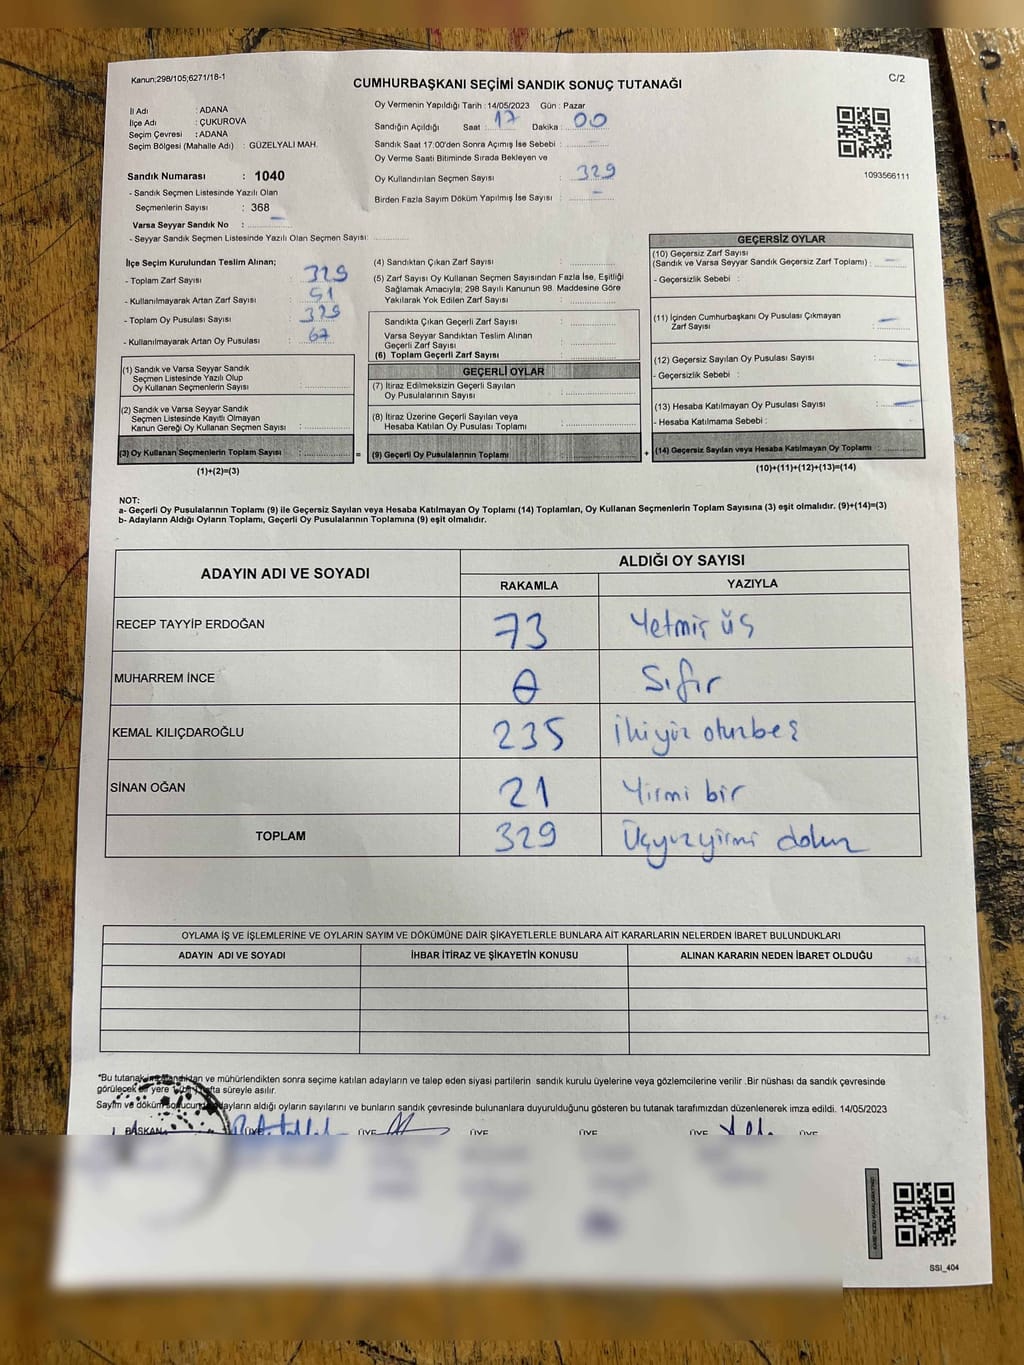 Kanun;298/105;6271/18-1
C/2
CUMHURBAŞKANI SEÇİMİ SANDIK SONUÇ TUTANAĞI
İl Adı : ADANA
İlçe Adı : ÇUKUROVA
Seçim Çevresi : ADANA
Seçim Bölgesi (Mahalle Adı) : GÜZELYALI MAH.
Sandık Numarası : 1040
- Sandık Seçmen Listesinde Yazılı Olan
Seçmenlerin Sayısı : 368
Varsa Seyyar Sandık No : -
- Seyyar Sandık Seçmen Listesinde Yazılı Olan Seçmen Sayısı:
Oy Vermenin Yapıldığı Tarih : 14/05/2023 Gün : Pazar
Sandığın Açıldığı Saat : 17 Dakika : 00
Sandık Saat 17:00'den Sonra Açımış İse Sebebi : -
Oy Verme Saati Bitiminde Sırada Bekleyen ve
Oy Kullandırılan Seçmen Sayısı : 329
Birden Fazla Sayım Döküm Yapılmış İse Sayısı : -
1093566111
İlçe Seçim Kurulundan Teslim Alınan;
- Toplam Zarf Sayısı : 329
- Kullanılmayarak Artan Zarf Sayısı : 51
- Toplam Oy Pusulası Sayısı : 329
- Kullanılmayarak Artan Oy Pusulası : 67
(1) Sandık ve Varsa Seyyar Sandık
Seçmen Listesinde Yazılı Olup
Oy Kullanan Seçmenlerin Sayısı :
(2) Sandık ve Varsa Seyyar Sandık
Seçmen Listesinde Kayıtlı Olmayan
Kanun Gereği Oy Kullanan Seçmen Sayısı :
(3) Oy Kullanan Seçmenlerin Toplam Sayısı :
(1)+(2)=(3)
=
(4) Sandıktan Çıkan Zarf Sayısı :
(5) Zarf Sayısı Oy Kullanan Seçmen Sayısından Fazla İse, Eşitliği
Sağlamak Amacıyla; 298 Sayılı Kanunun 98. Maddesine Göre
Yakılarak Yok Edilen Zarf Sayısı :
Sandıkta Çıkan Geçerli Zarf Sayısı :
Varsa Seyyar Sandıktan Teslim Alınan
Geçerli Zarf Sayısı :
(6) Toplam Geçerli Zarf Sayısı :
GEÇERLİ OYLAR
(7) İtiraz Edilmeksizin Geçerli Sayılan
Oy Pusulalarının Sayısı :
(8) İtiraz Üzerine Geçerli Sayılan veya
Hesaba Katılan Oy Pusulası Toplamı :
(9) Geçerli Oy Pusulalarının Toplamı :
+
GEÇERSİZ OYLAR
(10) Geçersiz Zarf Sayısı
(Sandık ve Varsa Seyyar Sandık Geçersiz Zarf Toplamı) : -
- Geçersizlik Sebebi :
(11) İçinden Cumhurbaşkanı Oy Pusulası Çıkmayan
Zarf Sayısı : -
(12) Geçersiz Sayılan Oy Pusulası Sayısı : -
- Geçersizlik Sebebi :
(13) Hesaba Katılmayan Oy Pusulası Sayısı : -
- Hesaba Katılmama Sebebi :
(14) Geçersiz Sayılan veya Hesaba Katılmayan Oy Toplamı :
(10)+(11)+(12)+(13)=(14)
NOT:
a- Geçerli Oy Pusulalarının Toplamı (9) ile Geçersiz Sayılan veya Hesaba Katılmayan Oy Toplamı (14) Toplamları, Oy Kullanan Seçmenlerin Toplam Sayısına (3) eşit olmalıdır. (9)+(14)=(3)
b- Adayların Aldığı Oyların Toplamı, Geçerli Oy Pusulalarının Toplamına (9) eşit olmalıdır.
ADAYIN ADI VE SOYADI
ALDIĞI OY SAYISI
RAKAMLA YAZIYLA
RECEP TAYYİP ERDOĞAN 73 Yetmiş üş
MUHARREM İNCE 0 Sıfır
KEMAL KILIÇDAROĞLU 235 İkiyüz oturzbeş
SİNAN OĞAN 21 Yirmi bir
TOPLAM 329 Üçyüzyirmi dokuz
OYLAMA İŞ VE İŞLEMLERİNE VE OYLARIN SAYIM VE DÖKÜMÜNE DAİR ŞİKAYETLERLE BUNLARA AİT KARARLARIN NELERDEN İBARET BULUNDUKLARI
ADAYIN ADI VE SOYADI İHBAR İTİRAZ VE ŞİKAYETİN KONUSU ALINAN KARARIN NEDEN İBARET OLDUĞU
*Bu tutanak ve mühürlendikten sonra seçime katılan adayların ve talep eden siyasi partilerin sandık kurulu üyelerine veya gözlemcilerine verilir .Bir nüshası da sandık çevresinde
görülecek bir yere 1 hafta süreyle asılır.
Sayım ve döküm sonucunda adayların aldığı oyların sayılarını ve bunların sandık çevresinde bulunanlara duyurulduğunu gösteren bu tutanak tarafımızdan düzenlenerek imza edildi. 14/05/2023
BAŞKAN ÜYE ÜYE ÜYE ÜYE ÜYE ÜYE
SSİ_404